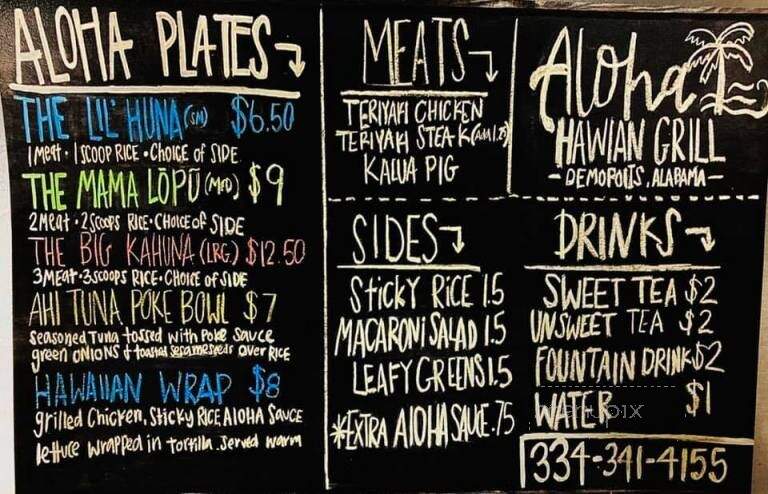 ALOHA PLATES
THE LIL' HUNA (SM) $6.50
1 Meat • 1 SCOOP RICE • CHOICE of SIDE
THE MAMA LŌPŪ (MED) $9
2 MEAT • 2 SCOOPS RICE • CHOICE OF SIDE
THE BIG KAHUNA (LRG.) $12.50
3 MEAT • 3 SCOOPS RICE • CHOICE OF SIDE
AHI TUNA POKE BOWL $7
seasoned Tuna tossed with Poke Sauce
green ONIONS & toasted sesameseeds OVER RICE
HAWAIIAN WRAP $8
grilled Chicken, Sticky RICE, AlOHA SAUCE
lettuce wrapped in tortilla. Served warm
MEATS
TERIYAKI CHICKEN
TERIYAKI STEAK (Add 1.25)
KALUA PIG
SIDES
STICKY RICE 1.5
MACARONI SALAD 1.5
LEAFY GREENS 1.5
*EXTRA AlOHA SAUCE .75
Aloha
HAWIAN GRILL
- DEMOPOLIS, ALABAMA -
DRINKS
SWEET TEA $2
UNSWEET TEA $2
FOUNTAIN DRINK $2
WATER $1
menupix
334-341-4155